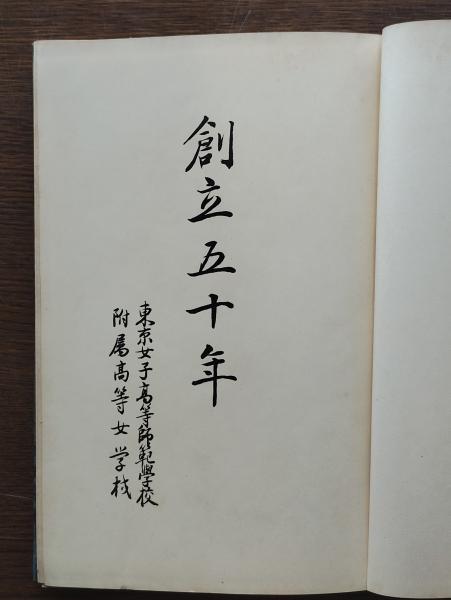 創立五十年
東京女子高等師範学校
附属高等女学校